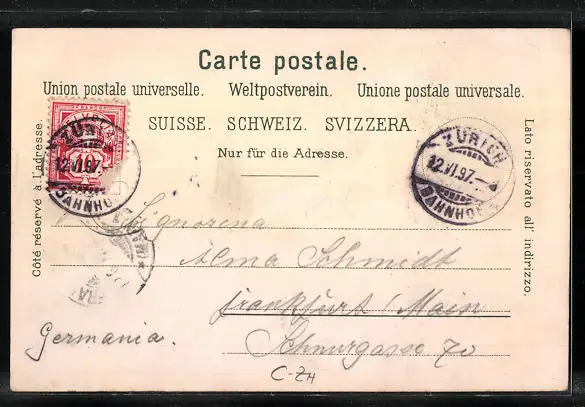 Carte postale.
Union postale universelle. Weltpostverein. Unione postale universale.
SUISSE. SCHWEIZ. SVIZZERA.
Nur für die Adresse.
Côté réservé à l'adresse.
Lato riservato all' indirizzo.
FRANCO
ZÜRICH
12.VI.97.
BAHNHOF
ZÜRICH
12.VI.97.-
BAHNHOF
Signorena
Alma Schmidt
Frankfurt / Main
Germania.
Schnurgasse 70
C-ZH